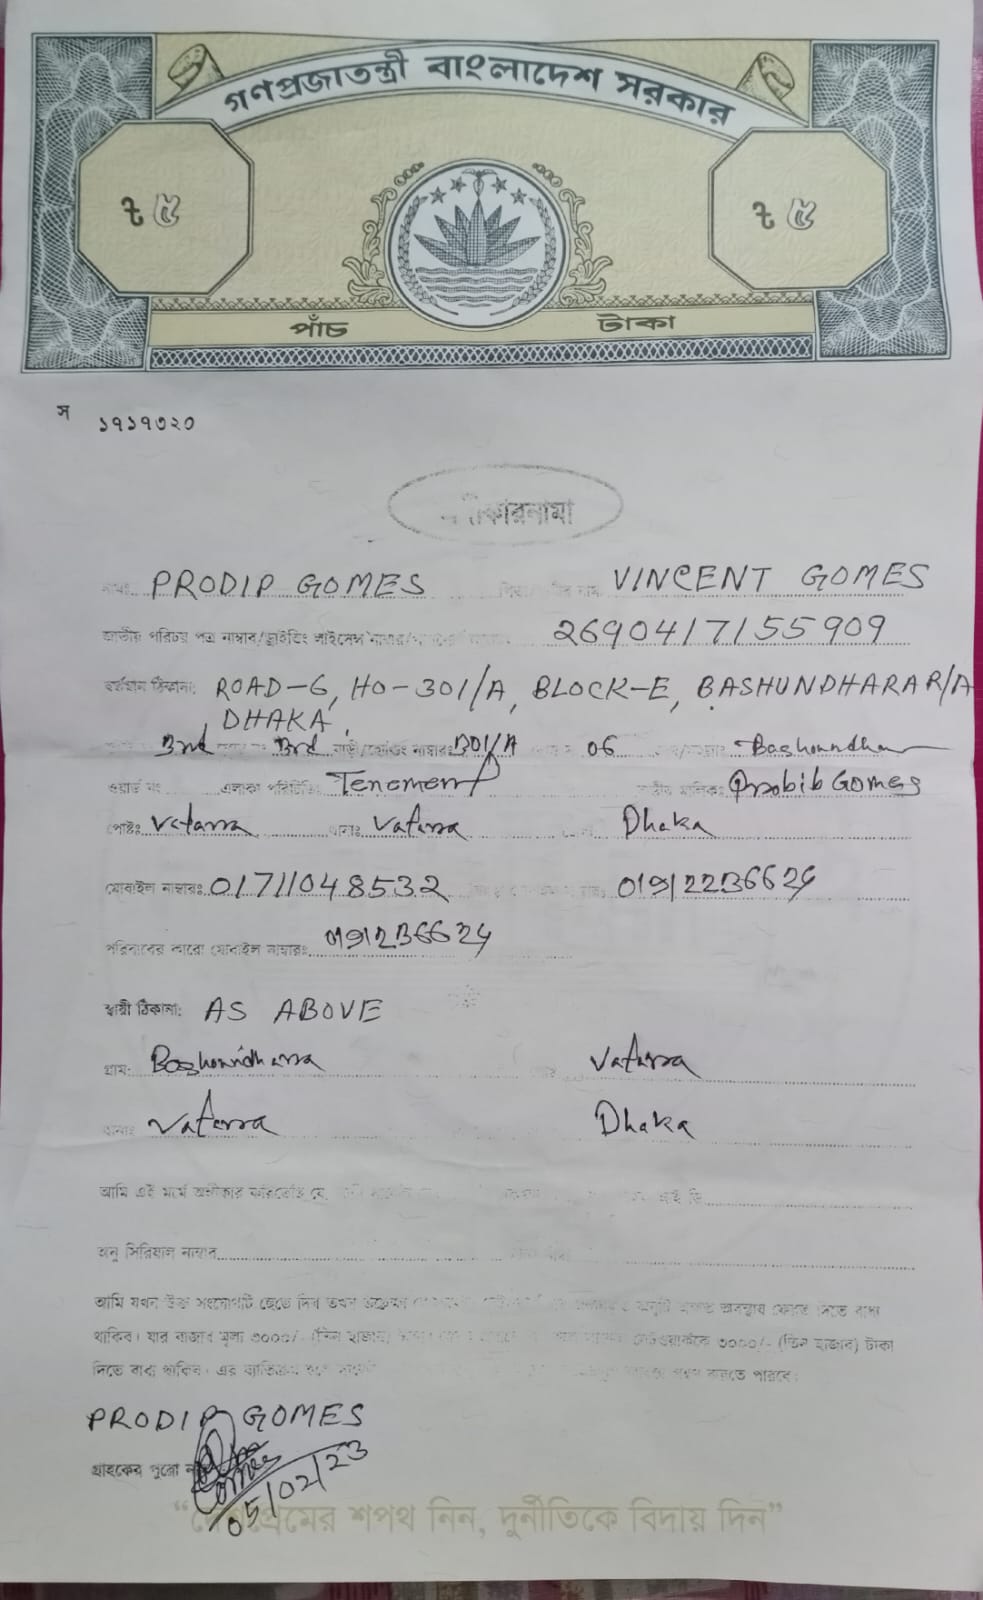 গণপ্রজাতন্ত্রী বাংলাদেশ সরকার
৳ ৫ ৳ ৫
পাঁচ টাকা
স ১৭১৭৩২০
নামঃ PRODIP GOMES নাম: VINCENT GOMES
জাতীয় পরিচয় পত্র নাম্বার/ড্রাইভিং লাইসেন্স নাম্বার/ 2690417155909
বর্তমান ঠিকানা: ROAD-6, HO-301/A, BLOCK-E, BASHUNDHARA R/A
DHAKA,
3rd 3rd বাড়ী/হোল্ডিং নাম্বারঃ 301/A 06 Bashoundhara
ওয়ার্ড নং এলাকা পরিচিতিঃ Tenement মালিকঃ Probib Gomes
পোষ্টঃ Vatarra থানাঃ Vatarra Dhaka
মোবাইল নাম্বারঃ 01711048532 01912236624
পরিবারের কারো মোবাইল নাম্বারঃ 0191236624
স্থায়ী ঠিকানা: AS ABOVE
গ্রাম: Bashoundharra Vatarra
থানাঃ Vatarra Dhaka
আমি এই মর্মে অঙ্গীকার করিতেছি যে, এই ডি
অনু সিরিয়াল নাম্বার
আমি যখন উক্ত সংযোগটি ছেড়ে দিব তখন অনুটি অবস্থায় ফেরত দিতে বাধ্য
থাকিব। যার বাজার মূল্য ৩০০০/- (তিন হাজার) নেটওয়ার্ককে ৩০০০/- (তিন হাজার) টাকা
দিতে বাধ্য থাকিব। এর ব্যতিক্রম হলে গ্রহণ করতে পারবে।
PRODIP GOMES
গ্রাহকের পুরো
05/02/23
প্রেমের শপথ নিন, দুর্নীতিকে বিদায় দিন”